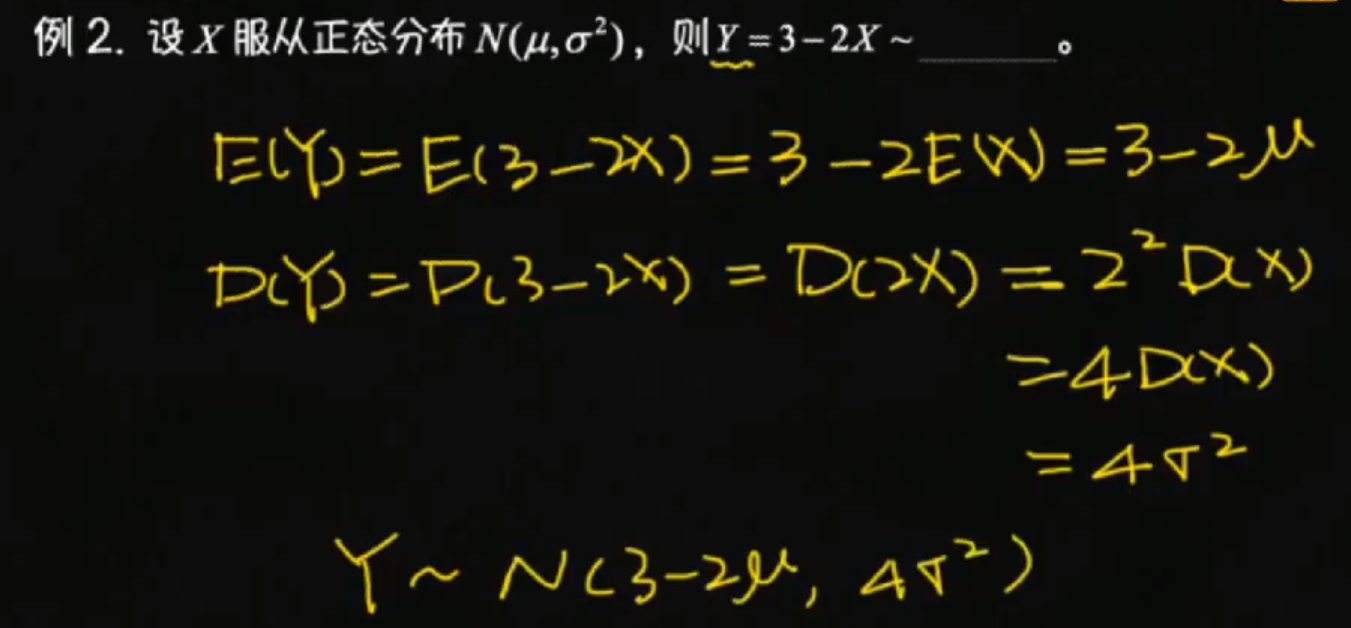 例 2. 设 X 服从正态分布 N(μ,σ²), 则 Y = 3 − 2X ~ ________。
E(Y) = E(3−2X) = 3 − 2E(X) = 3−2μ
D(Y) = D(3−2X) = D(2X) = 2² D(X)
= 4D(X)
= 4σ²
Y ~ N(3−2μ, 4σ²)